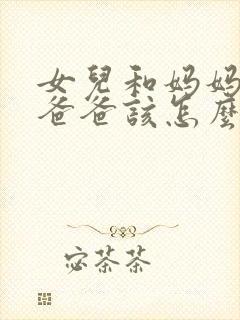 女兒和媽媽
爸爸該怎麼
宓茶茶